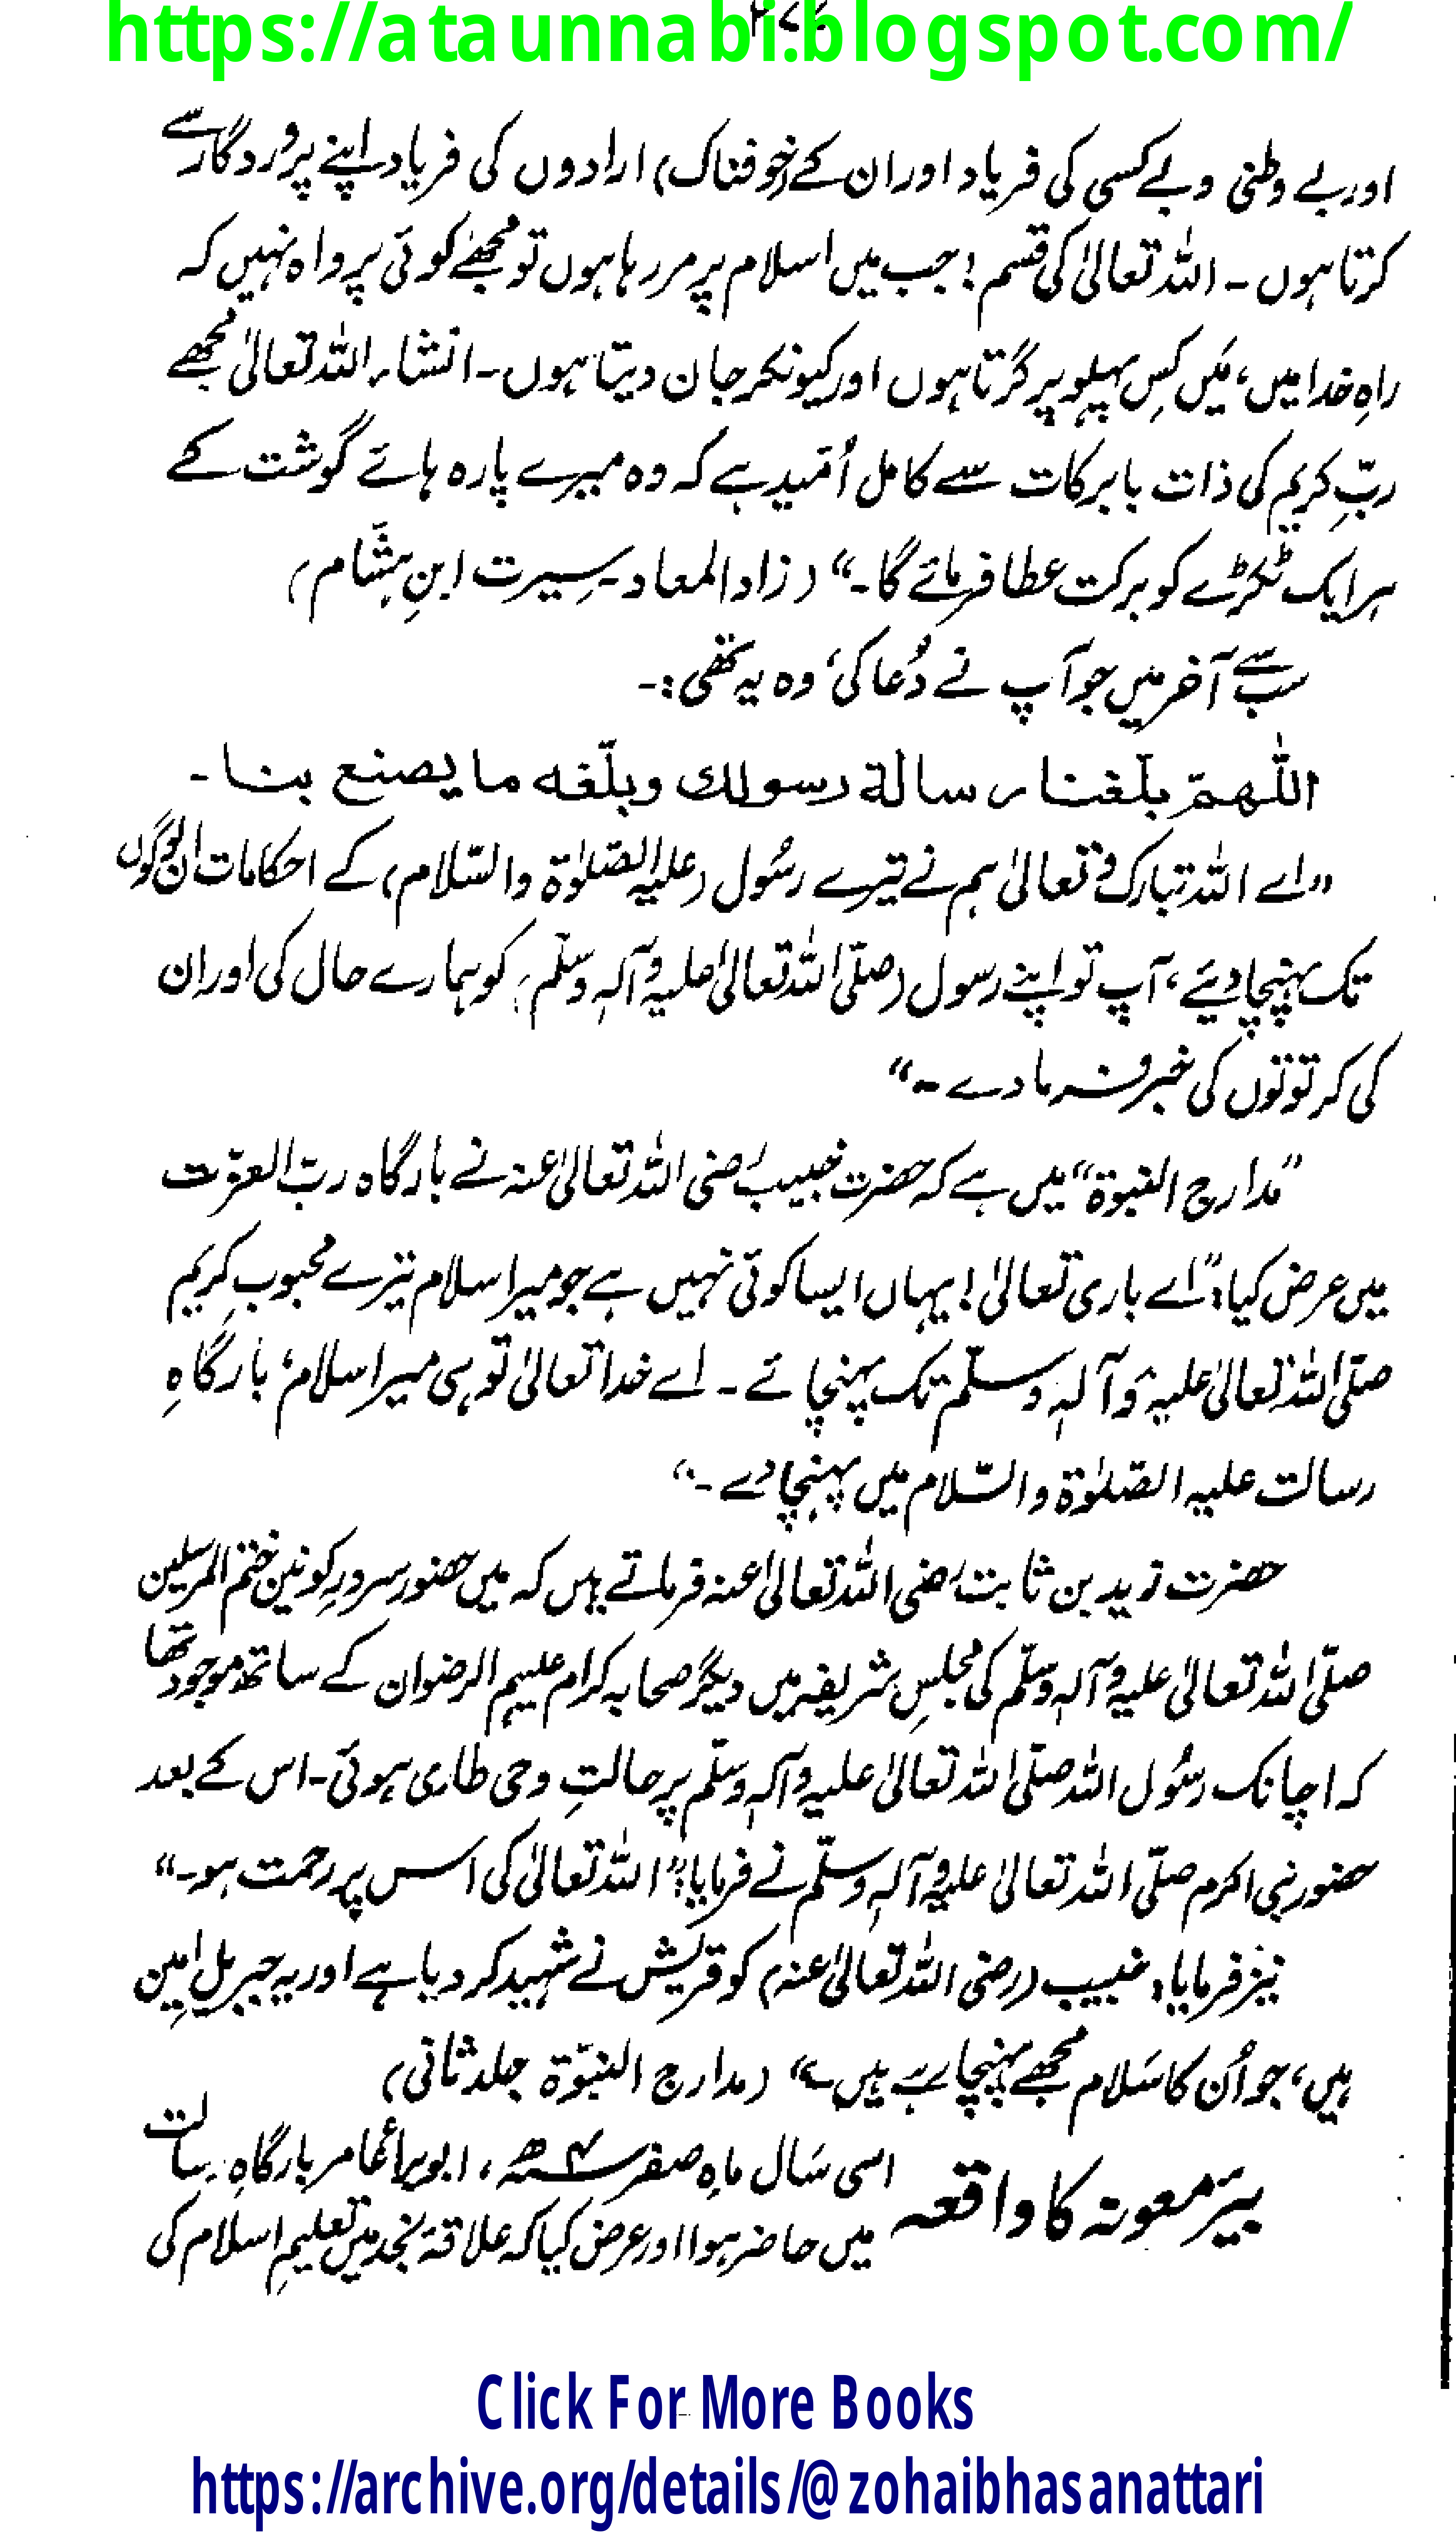 https://ataunnabi.blogspot.com/
اور بے وطنی و بے کسی کی فریاد اور ان کے (خوفناک) ارادوں کی فریاد اپنے پروردگار سے
کرتا ہوں ۔ اللہ تعالیٰ کی قسم! جب میں اسلام پر مر رہا ہوں تو مجھے کوئی پرواہ نہیں کہ
راہِ خدا میں، مَیں کِس پہلو پر گرتا ہوں اور کیونکر جان دیتا ہوں۔ انشاء اللہ تعالیٰ مجھے
ربِّ کریم کی ذات بابرکات سے کامل اُمّید ہے کہ وہ میرے پارہ ہائے گوشت کے
ہر ایک ٹکڑے کو برکت عطا فرمائے گا۔“ (زاد المعاد۔ سیرت ابنِ ہشّام)
سب سے آخر میں جو آپ نے دُعا کی، وہ یہ تھی:۔
اللّٰھمّ بلّغنا رسالة رسولك وبلّغه ما یصنع بنا ۔
”اے اللہ تبارک و تعالیٰ ہم نے تیرے رسُول (علیہ الصّلوٰۃ والسّلام) کے احکامات ان لوگوں
تک پہنچا دیئے، آپ تو اپنے رسول (صلّی اللہ تعالیٰ علیہ وآلہٖ وسلّم) کو ہمارے حال کی اور ان
کی کرتوتوں کی خبر فرما دے ۔“
”مدارج النبوۃ“ میں ہے کہ حضرت خبیب رضی اللہ تعالیٰ عنہ نے بارگاہ ربّ العزّت
میں عرض کیا: ”اے باری تعالیٰ! یہاں ایسا کوئی نہیں ہے جو میرا سلام تیرے محبوبِ کریم
صلّی اللہ تعالیٰ علیہ وآلہٖ وسلّم تک پہنچائے ۔ اے خدا تعالیٰ تو ہی میرا سلام، بارگاہِ
رسالت علیہ الصّلوٰۃ والسّلام میں پہنچا دے ۔“
حضرت زید بن ثابت رضی اللہ تعالیٰ عنہ فرماتے ہیں کہ میں حضور سرورِ کونین ختم المرسلین
صلّی اللہ تعالیٰ علیہ وآلہٖ وسلّم کی مجلسِ شریفہ میں دیگر صحابہ کرام علیہم الرضوان کے ساتھ موجود تھا
کہ اچانک رسُول اللہ صلّی اللہ تعالیٰ علیہ وآلہٖ وسلّم پر حالتِ وحی طاری ہوئی۔ اس کے بعد
حضور نبی اکرم صلّی اللہ تعالیٰ علیہ وآلہٖ وسلّم نے فرمایا: ”اللہ تعالیٰ کی اس پر رحمت ہو۔“
نیز فرمایا: خبیب (رضی اللہ تعالیٰ عنہ) کو قریش نے شہید کر دیا ہے اور یہ جبریلِ امین
ہیں، جو اُن کا سَلام مجھے پہنچا رہے ہیں۔“ (مدارج النبوّۃ جلد ثانی)
بیٔر معونہ کا واقعہ
اسی سَال ماہِ صفر ۴ھ، ابو براء عامر بارگاہِ رسالت
میں حاضر ہوا اور عرض کیا کہ علاقۂ نجد میں تعلیمِ اسلام کی
Click For More Books
https://archive.org/details/@zohaibhasanattari